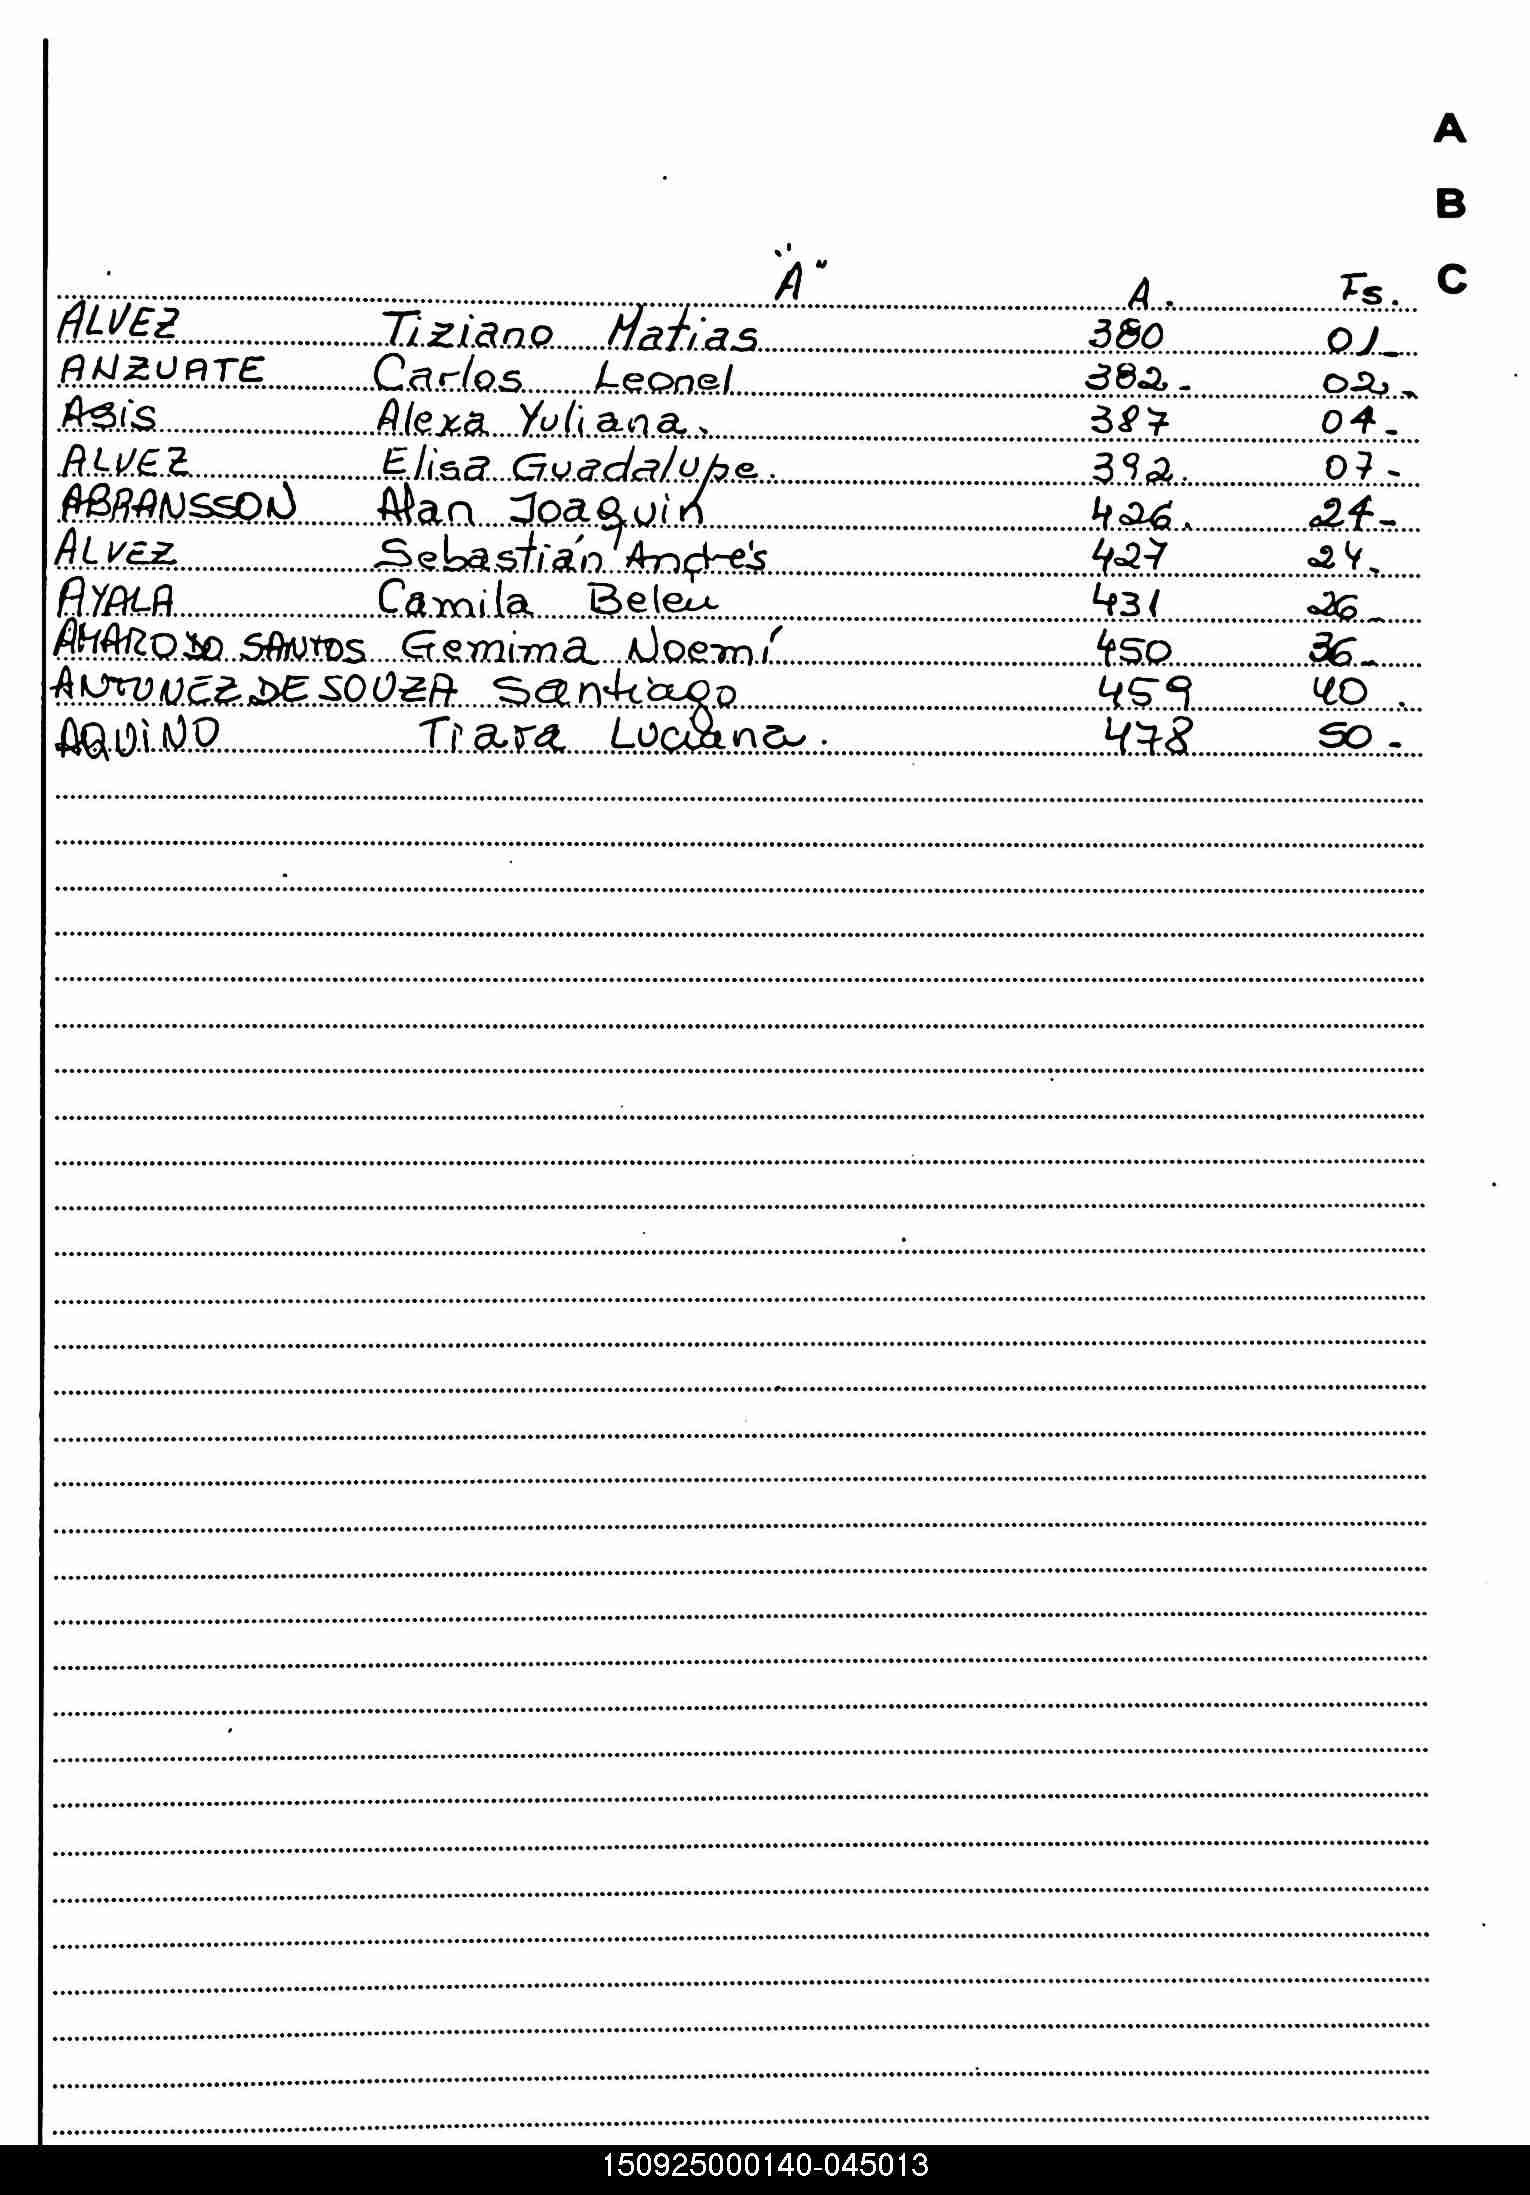 A
B
"A" A. Fs. C
ALVEZ Tiziano Matias 380 01_
ANZUATE Carlos Leonel 382.- 02._
ASIS Alexa Yuliana. 387 04-
ALVEZ Elisa Guadalupe. 392. 07-
ABRANSSON Alan Joaquin 426. 24-
ALVEZ Sebastián Andrés 427 24._
AYALA Camila Belen 431 26_
AMARO DO SANTOS Gemima Noemí 450 36_
ANTUNEZ DE SOUZA Santiago 459 40.
AQUINO Tiara Luciana. 478 50-
150925000140-045013